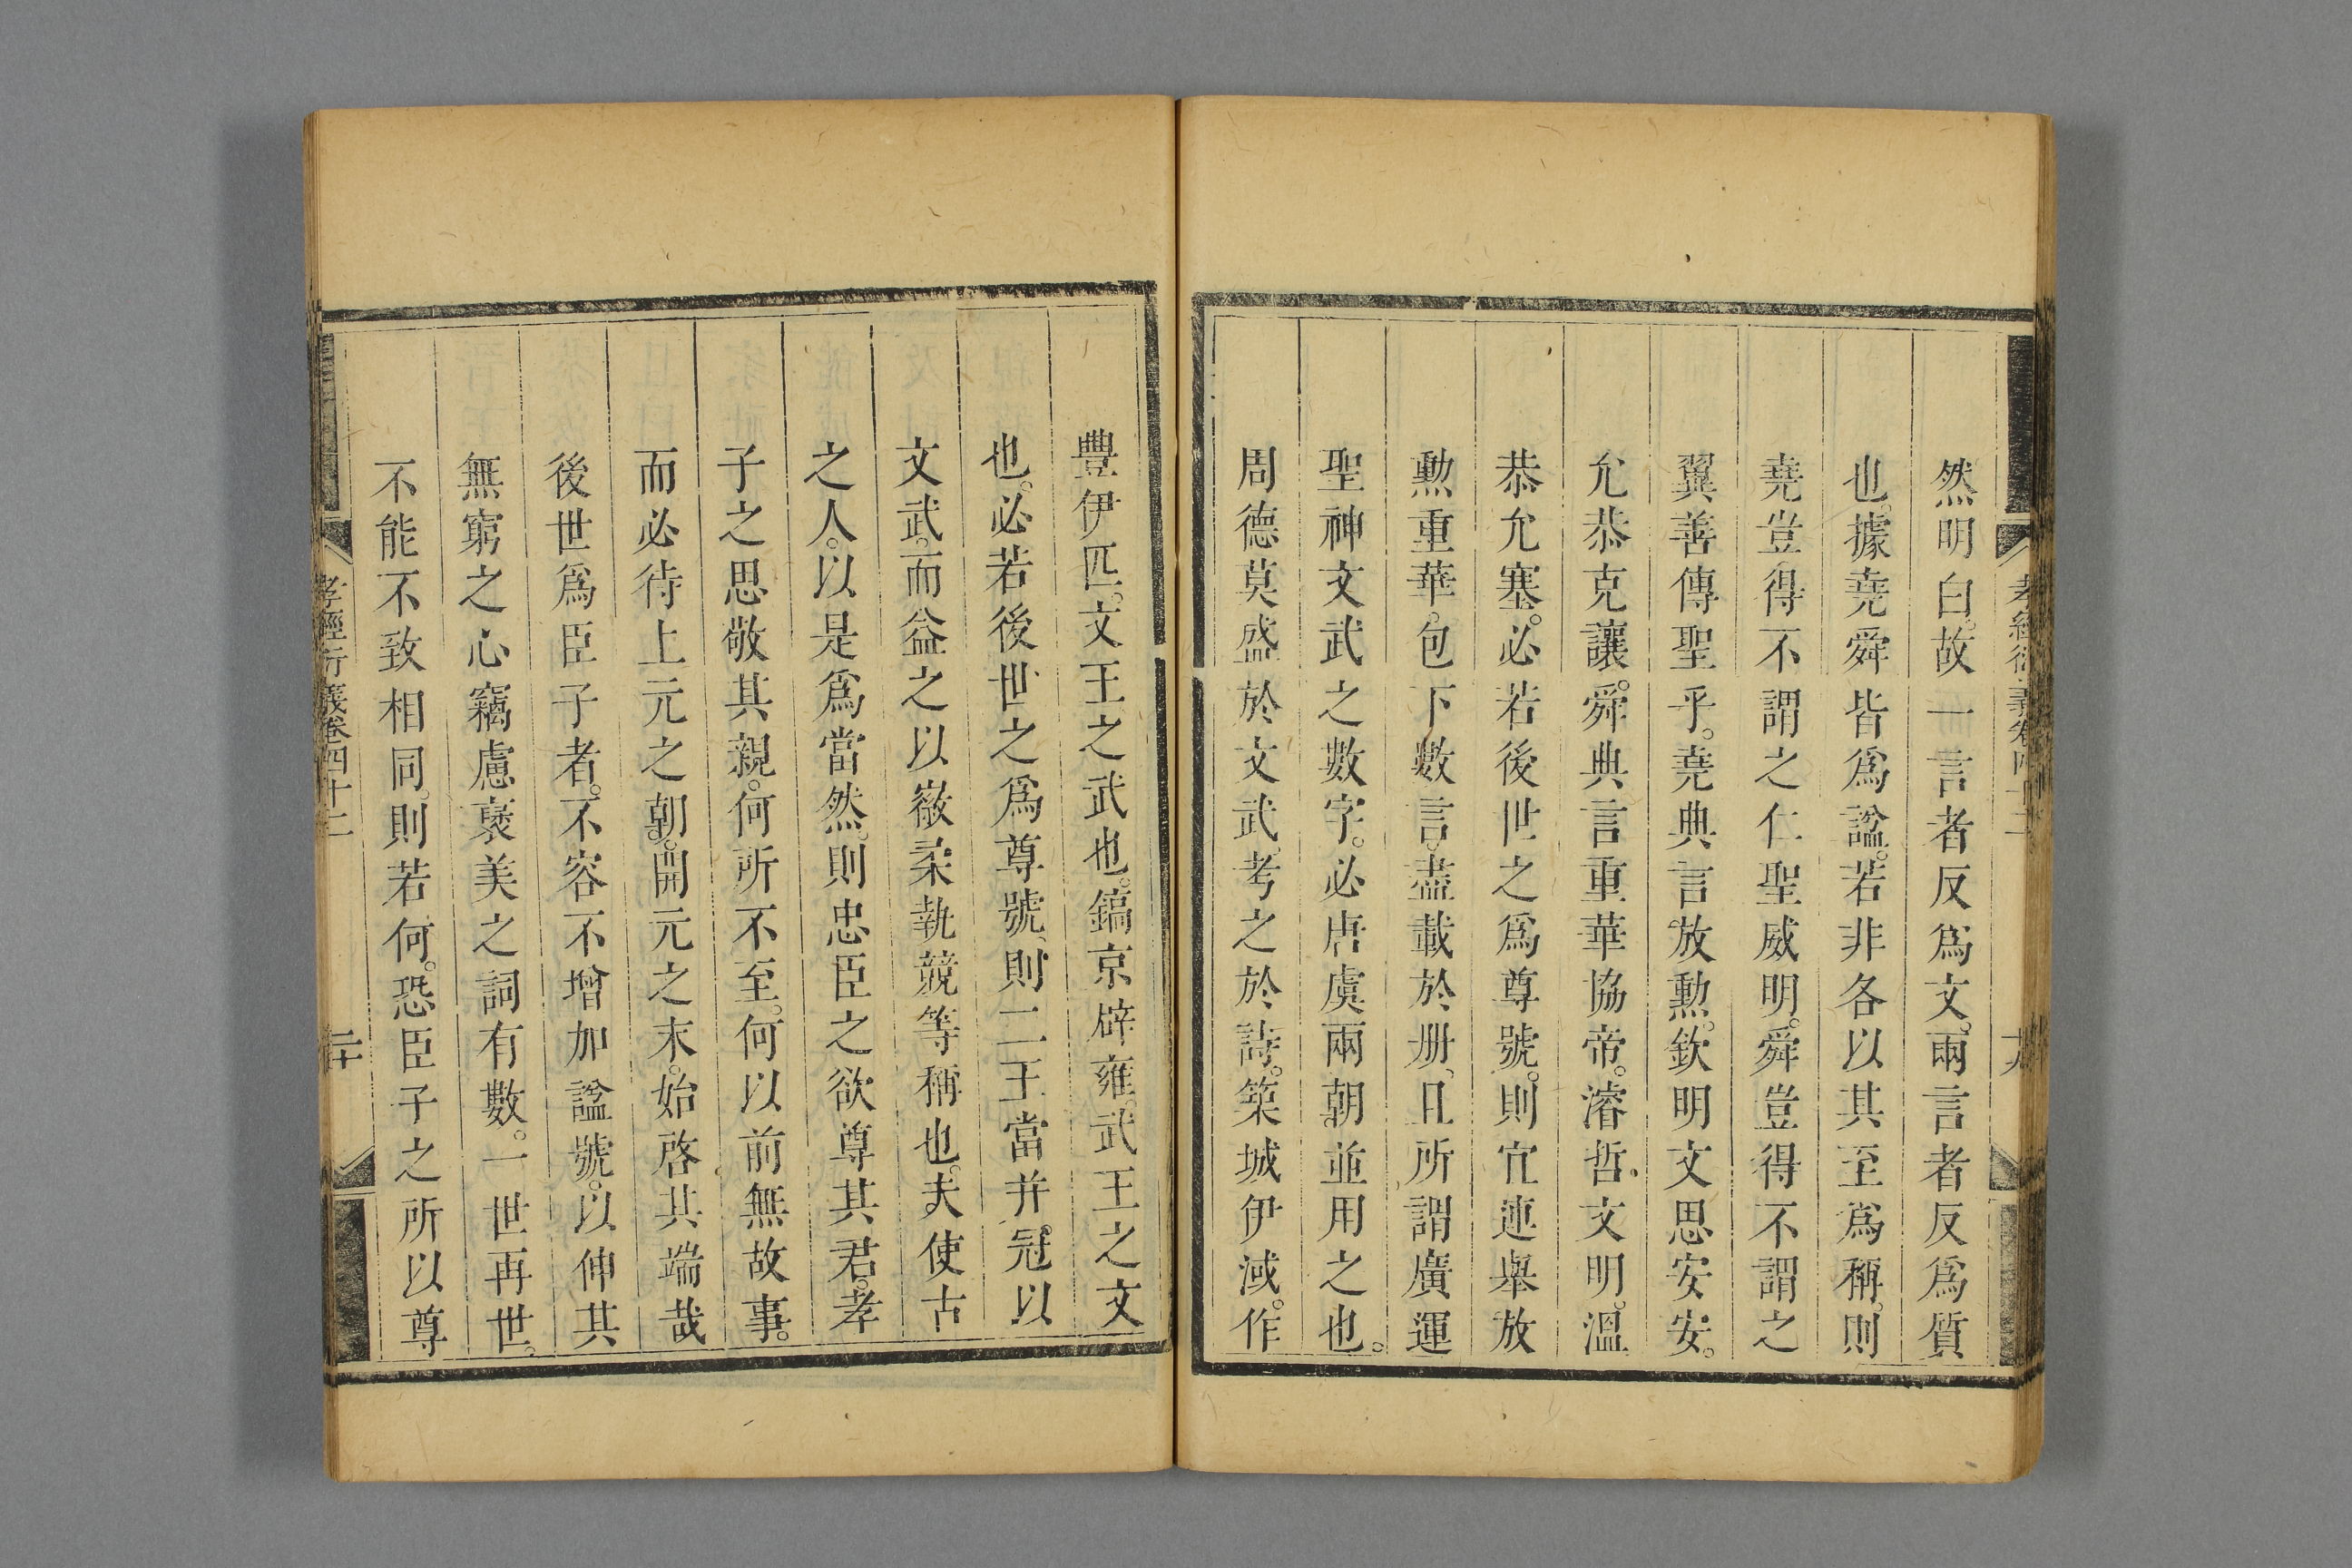 孝經衍義卷四十二
十九
然明白。故一言者反爲文。兩言者反爲質
也。據堯舜皆爲諡。若非各以其至爲稱。則
堯豈得不謂之仁聖威明。舜豈得不謂之
翼善傳聖乎。堯典言放勲。欽明文思安安。
允恭克讓。舜典言重華協帝。濬哲文明。溫
恭允塞。必若後世之爲尊號。則宜連舉放
勲重華。包下數言。盡載於册、且所謂廣運
聖神文武之數字。必唐虞兩朝。並用之也。
周德莫盛於文武。考之於詩。築城伊淢。作
豐伊匹。文王之武也。鎬京辟雍。武王之文
也。必若後世之爲尊號、則二王當并冠以
文武。而益之以徽柔執競等稱也。夫使古
之人。以是爲當然。則忠臣之欲尊其君。孝
子之思敬其親。何所不至。何以前無故事。
而必待上元之朝。開元之末。始啓其端哉
後世爲臣子者。不容不增加諡號。以伸其
無窮之心竊慮褒美之詞有數。一世再世。
不能不致相同。則若何。恐臣子之所以尊
孝經衍義卷四十二
二十